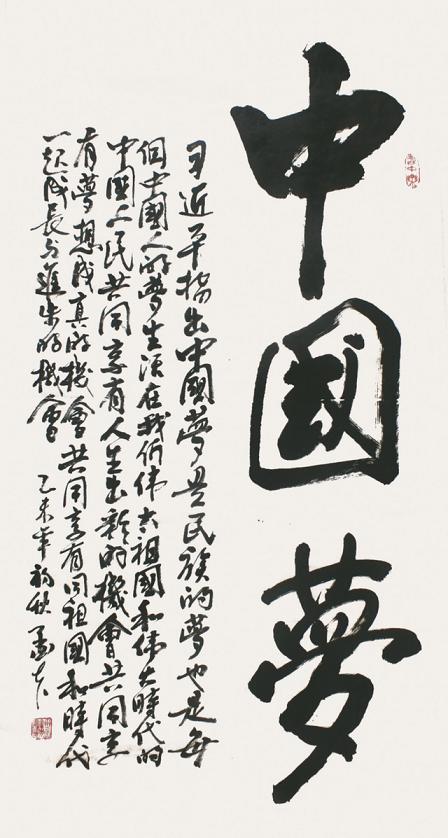 中國夢
習近平指出中國夢是民族的夢也是每
個中國人的夢生活在我們偉大祖國和偉大時代的
中國人民共同享有人生出彩的機會共同享
有夢想成真的機會共同享有同祖國和時代
一起成長與進步的機會
乙未年初秋